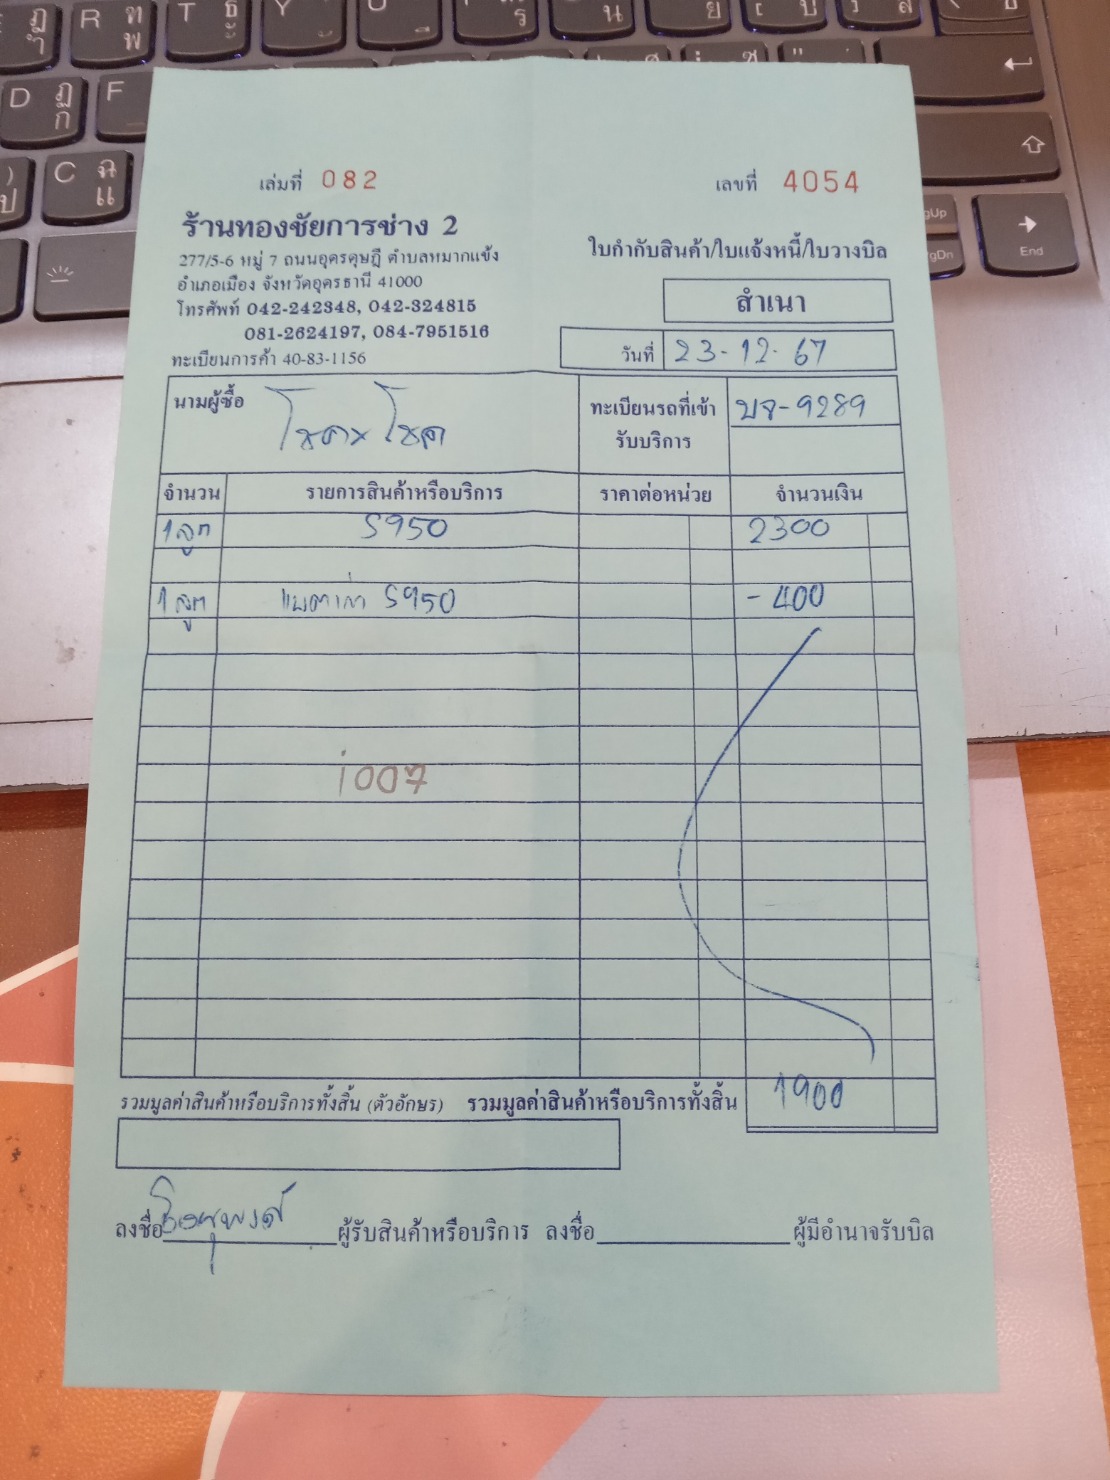 เล่มที่ 082 เลขที่ 4054
ร้านทองชัยการช่าง 2
277/5-6 หมู่ 7 ถนนอุดรดุษฎี ตำบลหมากแข้ง
อำเภอเมือง จังหวัดอุดรธานี 41000
โทรศัพท์ 042-242348, 042-324815
081-2624197, 084-7951516
ทะเบียนการค้า 40-83-1156
ใบกำกับสินค้า/ใบแจ้งหนี้/ใบวางบิล
สำเนา
วันที่ 23-12-67
นามผู้ซื้อ
ทะเบียนรถที่เข้ารับบริการ บจ-9289
จำนวน รายการสินค้าหรือบริการ ราคาต่อหน่วย จำนวนเงิน
1 ลูก S950 2300
1 ลูก แบตเก่า S950 -400
1007
รวมมูลค่าสินค้าหรือบริการทั้งสิ้น (ตัวอักษร) รวมมูลค่าสินค้าหรือบริการทั้งสิ้น 1900
ลงชื่อ ผู้รับสินค้าหรือบริการ ลงชื่อ ผู้มีอำนาจรับบิล